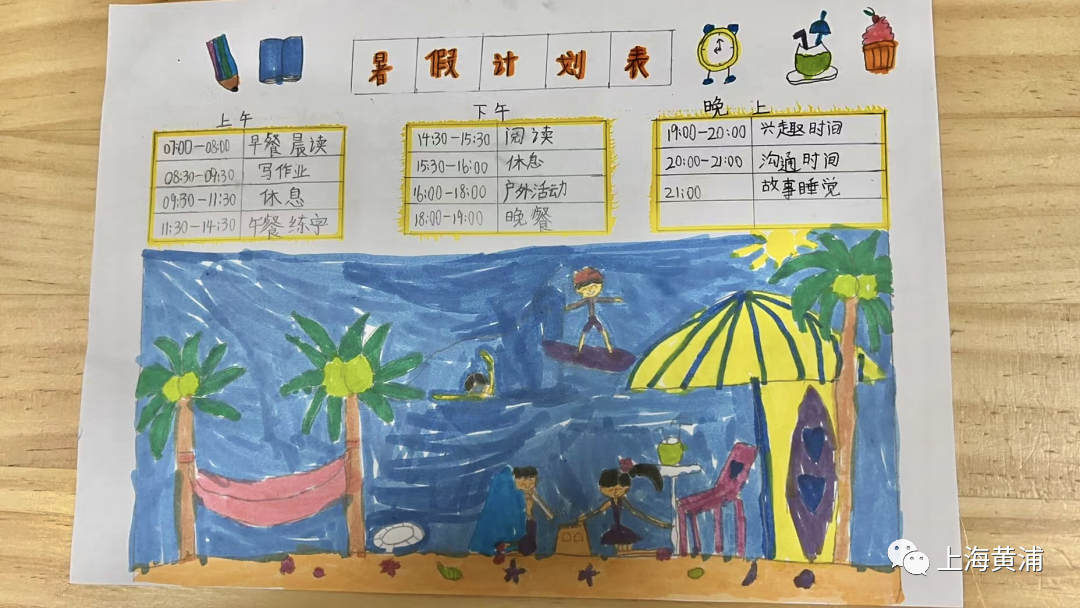 暑假计划表
上午
07:00-08:00 早餐 晨读
08:30-09:30 写作业
09:30-11:30 休息
11:30-14:30 午餐 练字
下午
14:30-15:30 阅读
15:30-16:00 休息
16:00-18:00 户外活动
18:00-19:00 晚餐
晚上
19:00-20:00 兴趣时间
20:00-21:00 沟通时间
21:00 故事睡觉
上海黄浦